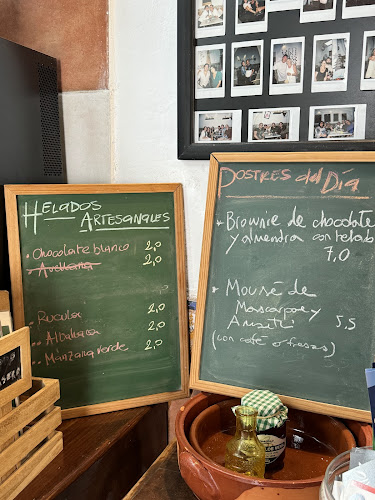 Helados
Artesanales
Chocolate blanco 2,0
Avellana 2,0
Rucula 2,0
Albahaca 2,0
Manzana verde 2,0
Postres del Día
Brownie de chocolate
y almendra con helado
7,0
Mousé de
Mascarpone y
5,5
(con café o fresas)